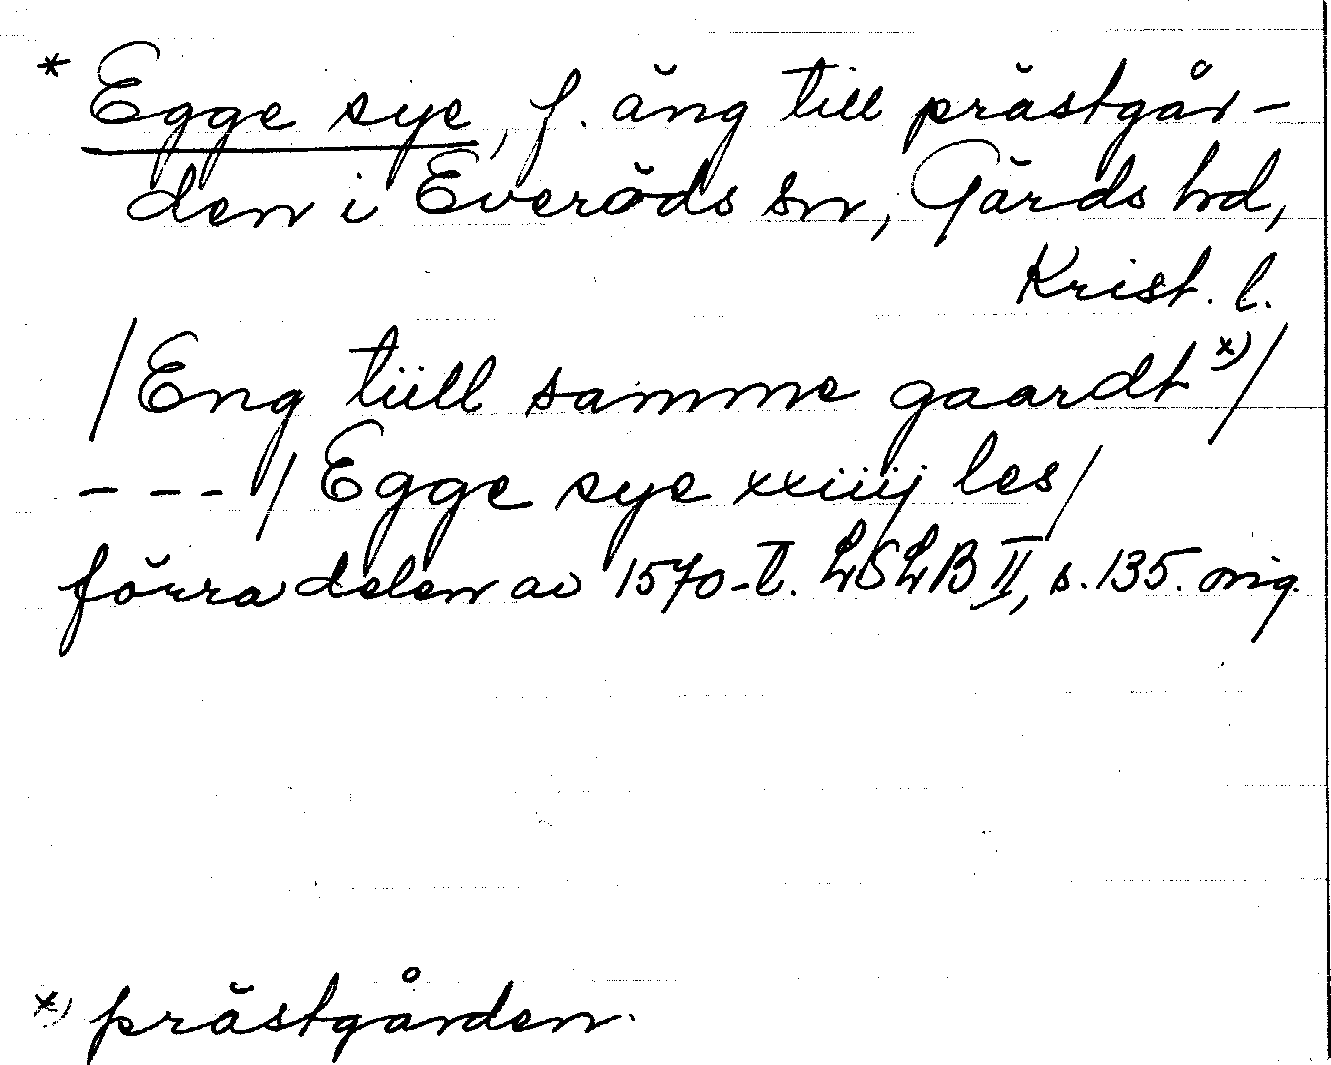 * Egge sye, f. äng till prästgår-
den i Everöds sn, Gärds hd,
Krist. l.
/Eng tiill samme gaardt x)/
- - - / Egge sye xxiiij les/
förra delen av 1570-t. LSLB II, s. 135. orig.
x) prästgården.